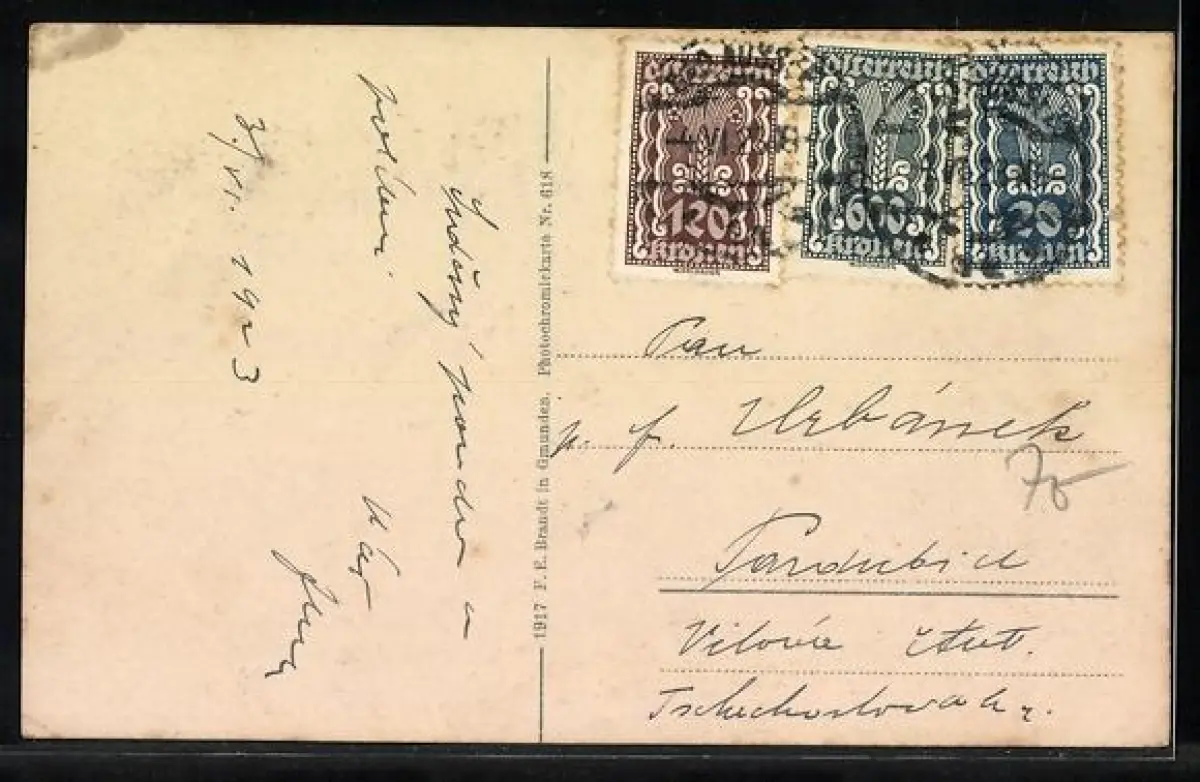 3./VI. 1923
Srdečný pozdrav a
Váš
1917 F. E. Brandt in Gmunden. Photochromiekarte Nr. 618
Österreich
120
Kronen
Österreich
600
Kronen
Österreich
20
Kronen
VI
Pan
p. f. Urbánek
Pardubic
Tschechoslovak
70